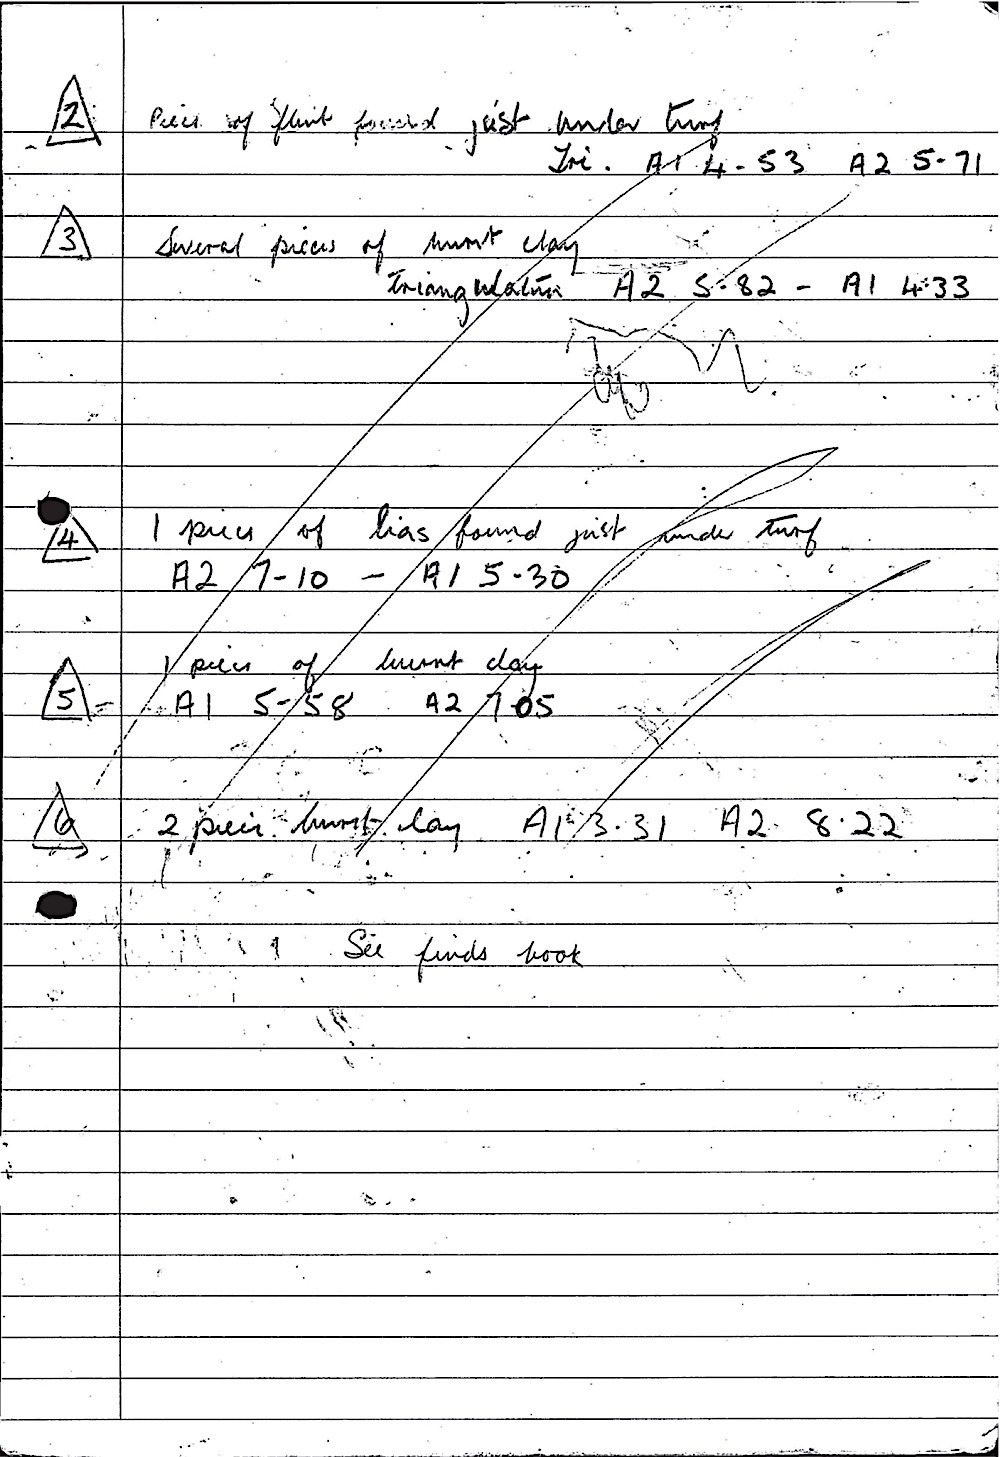 2 Piece of flint found just under turf
Tri. A1 4-53 A2 5-71
3 Several pieces of burnt clay
Triangulation A2 5-82 - A1 4-33
4 1 piece of lias found just under turf
A2 7-10 - A1 5-30
1 piece of burnt clay
5 A1 5-58 A2 7-05
6 2 piece burnt clay A1 3.31 A2 8.22
See finds book